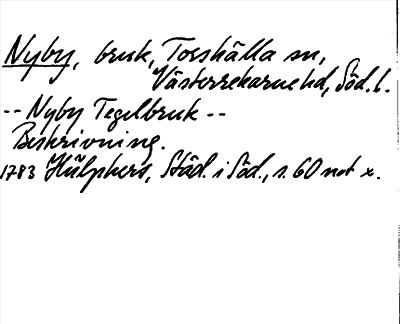 Nyby, bruk, Torshälla sn,
Västerrekarne hd, Söd. l.
-- Nyby Tegelbruk --
Beskrivning.
1783 Hülphers, Städ. i Söd., s. 60 not x.